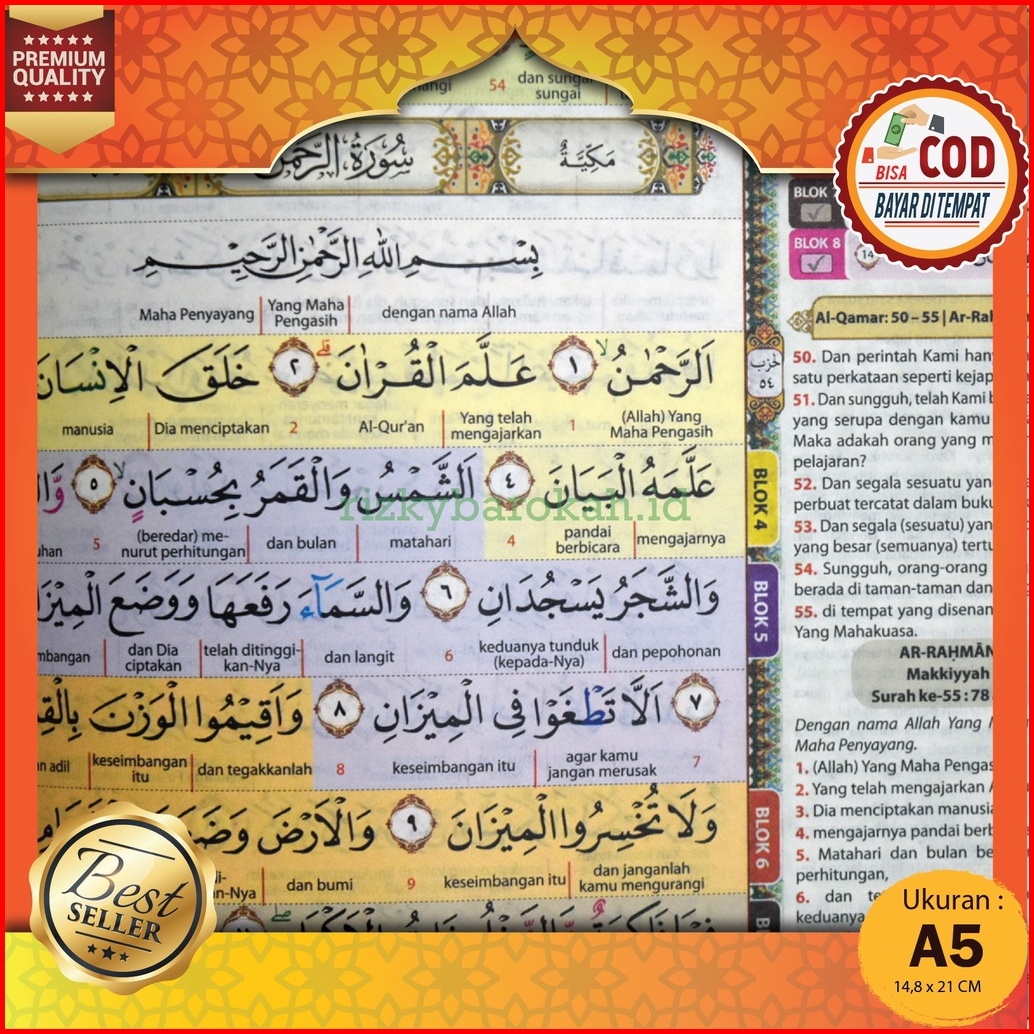 PREMIUM
QUALITY
BISA
COD
BAYAR DI TEMPAT
54
dan sungai
sungai
سُورَةُ الرَّحْمٰنِ
مَكِّيَّةٌ
بِسْمِ اللّٰهِ الرَّحْمٰنِ الرَّحِيْمِ
dengan nama Allah
Yang Maha
Pengasih
Maha Penyayang
اَلرَّحْمٰنُۙ ١ عَلَّمَ الْقُرْاٰنَۗ ٢ خَلَقَ الْاِنْسَانَ
(Allah) Yang
Maha Pengasih
1
Yang telah
mengajarkan
Al-Qur'an
2
Dia menciptakan
manusia
عَلَّمَهُ الْبَيَانَ ٤ اَلشَّمْسُ وَالْقَمَرُ بِحُسْبَانٍۙ ٥
mengajarnya
pandai
berbicara
4
matahari
dan bulan
(beredar) me-
nurut perhitungan
5
وَالشَّجَرُ يَسْجُدَانِ ٦ وَالسَّمَاۤءَ رَفَعَهَا وَوَضَعَ
dan pepohonan
keduanya tunduk
(kepada-Nya)
6
dan langit
telah ditinggi-
kan-Nya
dan Dia
ciptakan
٧ اَلَّا تَطْغَوْا فِى الْمِيْزَانِ ٨ وَاَقِيْمُوا الْوَزْنَ
7
agar kamu
jangan merusak
keseimbangan itu
8
dan tegakkanlah
keseimbangan
itu
adil
وَلَا تُخْسِرُوا الْمِيْزَانَ ٩ وَالْاَرْضَ
dan janganlah
kamu mengurangi
keseimbangan itu
9
dan bumi
rizkybarokah.id
الحزب
٥٤
BLOK 4
BLOK 5
BLOK 6
BLOK 7
BLOK 8
14
Al-Qamar: 50 – 55 | Ar-Ra
50. Dan perintah Kami
satu perkataan seperti
51. Dan sungguh, telah Kami
yang serupa dengan kamu
Maka adakah orang yang
pelajaran?
52. Dan segala sesuatu
perbuat tercatat dalam
53. Dan segala (sesuatu)
yang besar (semuanya)
54. Sungguh, orang-orang
berada di taman-taman dan
55. di tempat yang
Yang Mahakuasa.
AR-RAḤMĀN
Makkiyyah
Surah ke-55 : 78
Dengan nama Allah Yang
Maha Penyayang.
1. (Allah) Yang Maha
2. Yang telah mengajarkan
3. Dia menciptakan
4. mengajarnya pandai
5. Matahari dan bulan
perhitungan,
6. dan
keduanya
Best
SELLER
Ukuran :
A5
14,8 x 21 CM